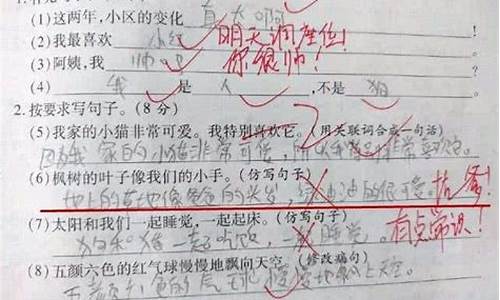 (1)这两年,小区的变化 真大啊
(2)我最喜欢 小红 明天调座位!
(3)阿姨,我 帅吗 你很帅!
(4) 我 是 人 ,不是 狗
2.按要求写句子。(8 分)
(5)我家的小猫非常可爱。我特别喜欢它。(用关联词合成一句话)
因为我家的小猫非常可爱,所以我 非常喜欢它。
(6)枫树的叶子像我们的小手。(仿写句子)
地上的草地像爸爸的头发,绿油油的很可爱。 找爹!
(7)太阳和我们一起睡觉,一起起床。(仿写句子)
狗和猪一起吃饭,一起睡觉。 有点常识!
(8)五颜六色的红气球慢慢地飘向天空。(修改病句)
五颜六色的气球慢慢地飘上天空。